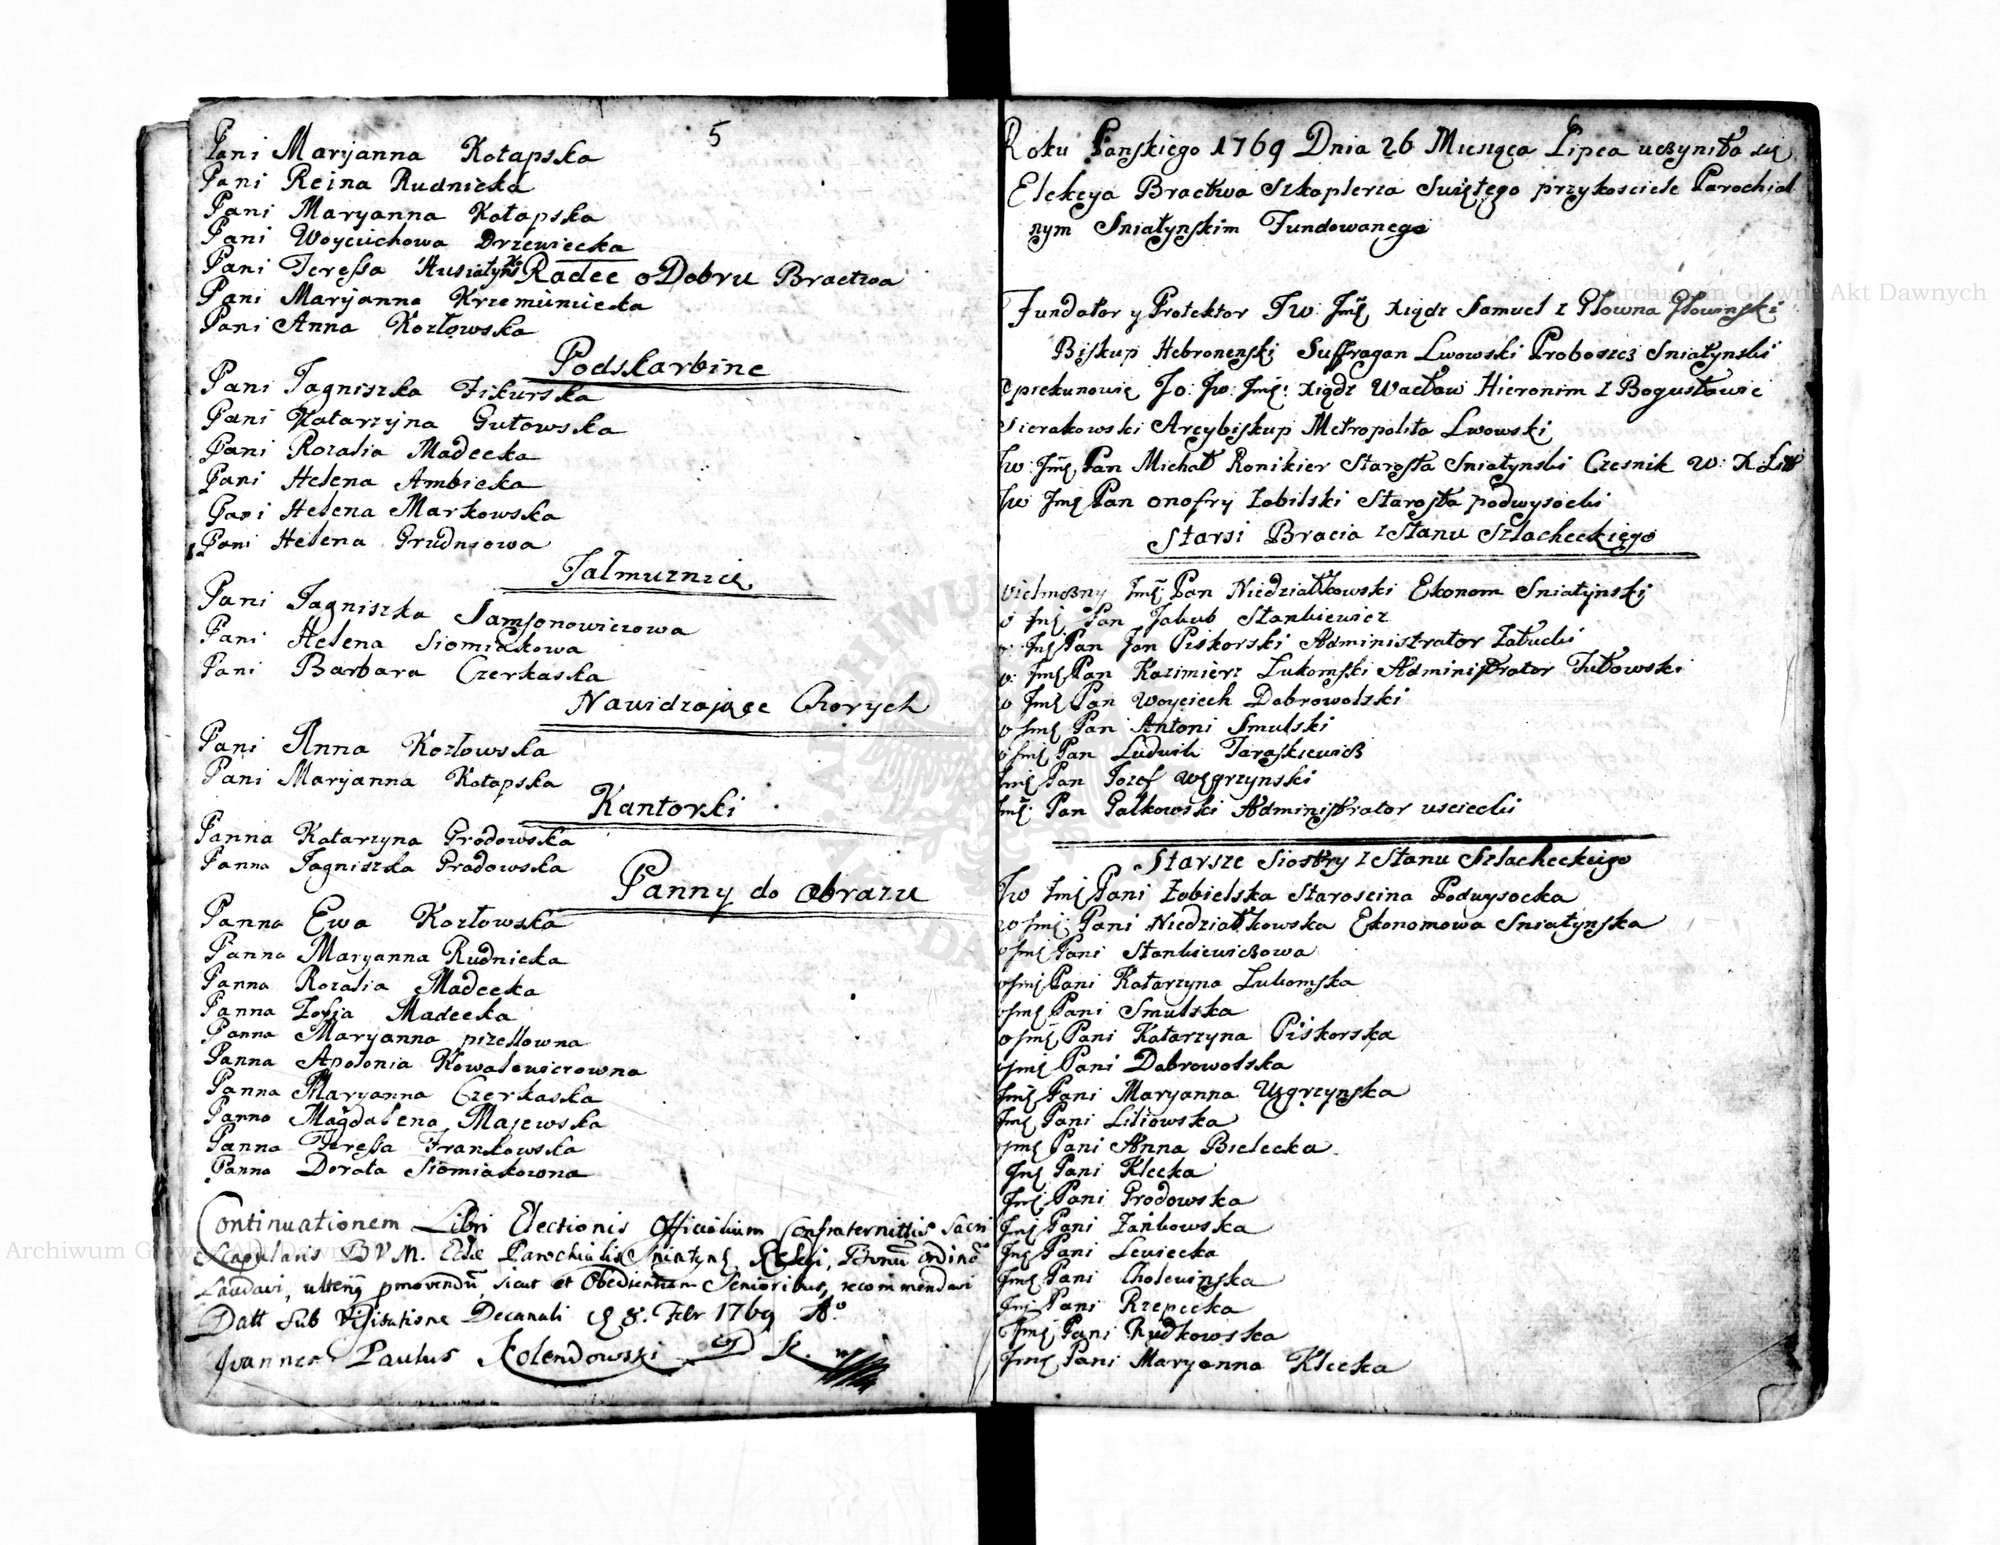 5
Pani Maryanna Kotapska
Pani Reina Rudnicka
Pani Maryanna Kotapska
Pani Woyciichowa Drzewiecka
Pani Teressa
Radce o Dobru Bractwa
Pani Maryanna Krzemimiecka
Pani Anna Kozłowska
Podskarbine
Pani Jagniszka Fikurska
Pani Katarzyna Gutowska
Pani Rozalia Madecka
Pani Helena Ambicka
Pani Helena Markowska
Pani Helena Grudniowa
Jałmuznice
Pani Jagniszka Samsonowiczowa
Pani Helena Siomiakowa
Pani Barbara Czerkaska
Nawidzające Chorych
Pani Anna Kozłowska
Pani Maryanna Kotapska
Kantorki
Panna Katarzyna Grodowska
Panna Jagniszka Grodowska
Panny do obrazu
Panna Ewa Kozłowska
Panna Maryanna Rudnicka
Panna Rozalia Madecka
Panna Zofia Madecka
Panna Maryanna
Panna Apolonia Kowalewiczowna
Panna Maryanna Czerkaska
Panna Magdalena Majewska
Panna Teressa Frankowska
Panna Dorata Siomiakowna
Continuationem Libri Electionis Officialium Confraternittis Sacri
Scapularis BVM. Parochialis
Laudavi, sicut et Obedientiam Senioribus, recommendavi
Datt sub Visitatione Decanali 8. Febr 1769 Ao
Joannes Paulus Kolendowski
Roku Panskiego 1769 Dnia 26 Miesąca Lipca uczyniła się
Elekcya Bractwa Szkaplerza Swiętego przykosciele Parochial
nym Sniatynskim Fundowanego
Fundator y Protektor Jw: Jmę Xiądz Samuel z Głowna Głowinski
Biskup Hebronenski Suffragan Lwowski Proboszcz Sniatynski
Opiekunowie Jo: Jw: Jmę: Xiądz Wacław Hieronim z Bogusławic
Sierakowski Arcybiskup Metropolita Lwowski
Jw: Jmę Pan Michał Ronikier Starosta Sniatynski Czesnik W: X Litt
Jw Jmę Pan Onofry Zobilski Starosta podwysocki
Starsi Bracia z Stanu Szlacheckiego
Wielmożny Jmę Pan Niedziałkowski Ekonom Sniatynski
Jmę Pan Jakub Stankiewicz
Jmę Pan Jan Piskorski Administrator Załucki
Jmę Pan Kazimierz Lukomski Administrator Tułowski
Jmę Pan Woyciech Dobrowolski
Jmę Pan Antoni Smulski
Jmę Pan Ludwik Taraskiewicz
Jmę Pan Jozef Węgrzynski
Jmę Pan Galkowski Administrator uscieckii
Starsze Siostry z Stanu Szlacheckiego
Jw Jmę Pani Zobielska Staroscina Podwysocka
Jmę Pani Niedziałkowska Ekonomowa Sniatynska
Jmę Pani Stankiewiczowa
Jmę Pani Katarzyna Lukomska
Jmę Pani Smulska
Jmę Pani Katarzyna Piskorska
Jmę Pani Dobrowolska
Jmę Pani Maryanna Węgrzynska
Jmę Pani Liliowska
Jmę Pani Anna Bielecka
Jmę Pani Klecka
Jmę Pani Grodowska
Jmę Pani Zankowska
Jmę Pani Lewiecka
Jmę Pani Cholewinska
Jmę Pani Rzepecka
Jmę Pani Rudkowska
Jmę Pani Maryanna Klecka
Archiwum Główne Akt Dawnych